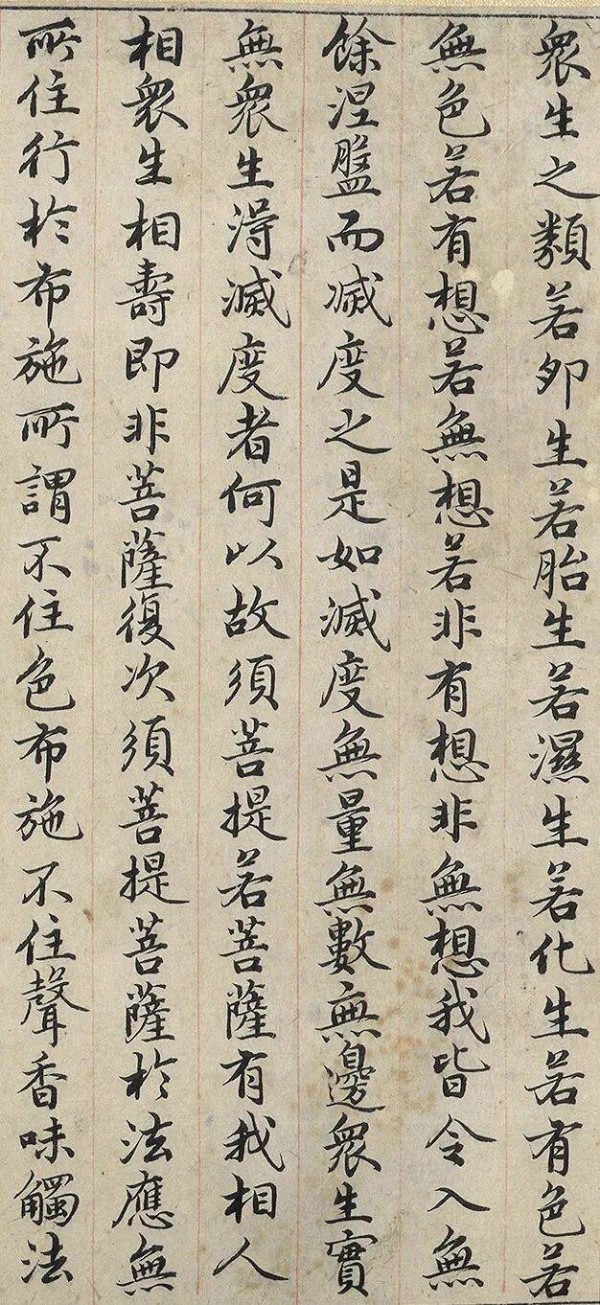 衆生之類若卵生若胎生若濕生若化生若有色若
無色若有想若無想若非有想非無想我皆令入無
餘涅盤而滅度之是如滅度無量無數無邊衆生實
無衆生得滅度者何以故須菩提若菩薩有我相人
相衆生相壽即非菩薩復次須菩提菩薩於法應無
所住行於布施所謂不住色布施不住聲香味觸法